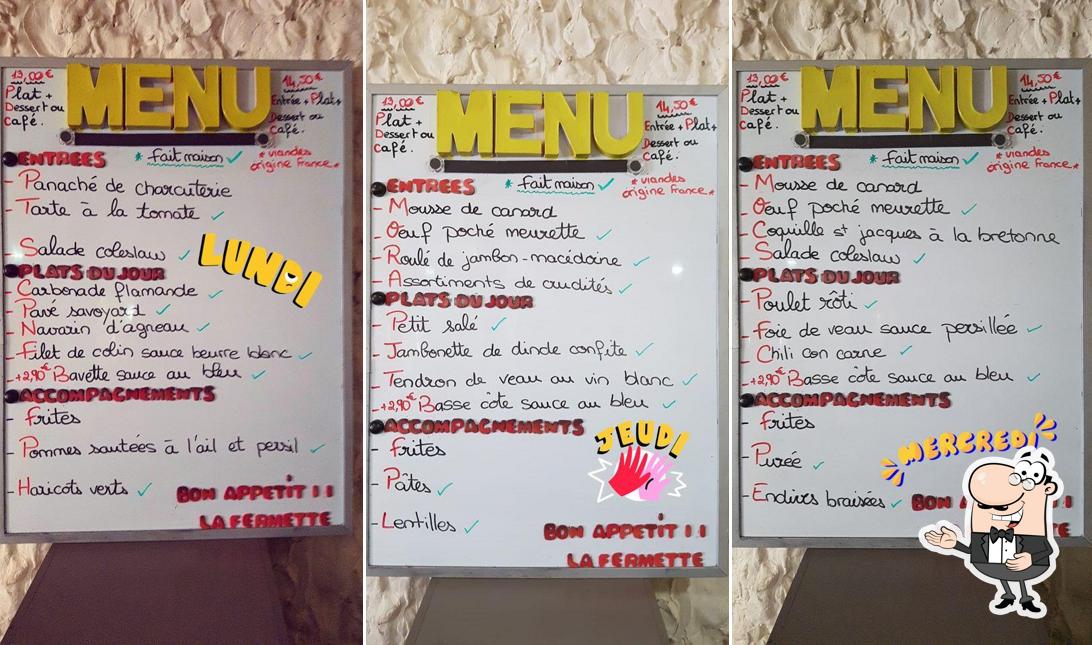 13,00€
Plat +
Dessert ou
Café.
MENU
14,50€
Entrée + Plat +
Dessert ou
Café.
ENTREES
* Fait maison ✓
* viandes
origine France *
- Panaché de charcuterie
- Tarte à la tomate ✓
- Salade coleslaw ✓
LUNDI
PLATS DU JOUR
- Carbonade flamande ✓
- Pavé savoyard ✓
- Navarin d'agneau ✓
- Filet de colin sauce beurre blanc ✓
- +2,90€ Bavette sauce au bleu ✓
ACCOMPAGNEMENTS
- Frites
- Pommes sautées à l'ail et persil ✓
- Haricots verts ✓
BON APPETIT !!
LA FERMETTE
13,00€
Plat +
Dessert ou
Café.
MENU
14,50€
Entrée + Plat +
Dessert ou
Café.
ENTREES
* Fait maison ✓
* viandes
origine France *
- Mousse de canard
- Oeuf poché meurette ✓
- Roulé de jambon-macédoine ✓
- Assortiments de crudités ✓
PLATS DU JOUR
- Petit salé ✓
- Jambonette de dinde confite ✓
- Tendron de veau au vin blanc ✓
- +2,90€ Basse côte sauce au bleu ✓
ACCOMPAGNEMENTS
- Frites
JEUDI
- Pâtes ✓
- Lentilles ✓
BON APPETIT !!
LA FERMETTE
13,00€
Plat +
Dessert ou
Café.
MENU
14,50€
Entrée + Plat +
Dessert ou
Café.
ENTREES
* Fait maison ✓
* viandes
origine France *
- Mousse de canard
- Oeuf poché meurette ✓
- Coquille st jacques à la bretonne
- Salade coleslaw ✓
PLATS DU JOUR
- Poulet rôti ✓
- Foie de veau sauce persillée ✓
- Chili con carne ✓
- +2,90€ Basse côte sauce au bleu ✓
ACCOMPAGNEMENTS
- Frites
MERCREDI
- Purée ✓
- Endives braisées ✓
BON